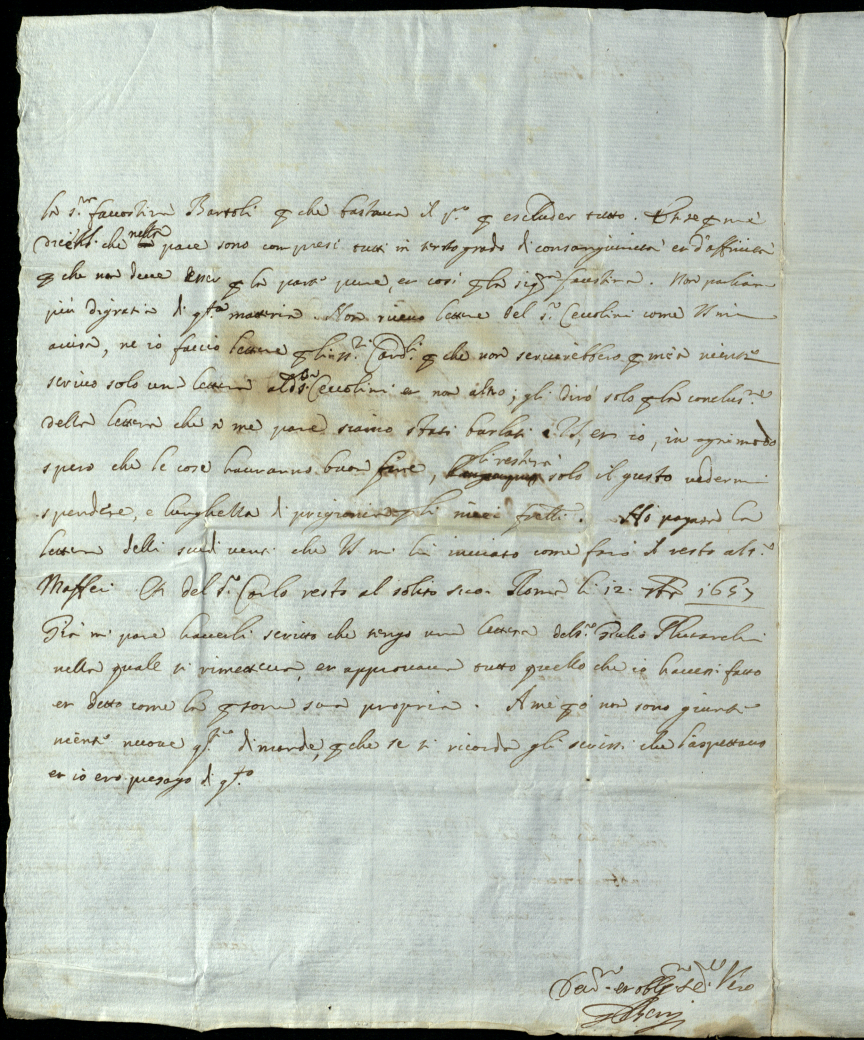 la s.ra faustina Bartoli p che bastaua il p.o p escluder tutto. Et se p me
dicessi che nella pace sono compresi tutti in terzo grado di consanguinità et d'affinità
p che non deue esser p la parte pure, et così p la sig.ra faustina. Non parliam
più di gratia di q.ta materia. Non riceuo lettere del s.r Ceccolini come V.S. mi
auisa, ne io faccio lettere p li ss.ri Card.li p che non seruirebbero p me a niente
scriuo solo una lettera al d.o s.r Ceccolini et non altro; gli dirò solo p la conclus.ne
della lettera che a me pare siamo stati burlati e V.S. et io, in ogni modo
spero che le cose hauranno buon fine, gli resterà solo il gusto uedermi
spendere, e lunghezza di prigionia p li miei frati. Ho pagata la
lettera delli scudi uenti che V.S. mi hà inuiato come farò il resto al s.r
Maffei. Et del s.r Carlo resto al solito suo. Roma li 12. 1657
Già mi pare hauerli scritto che tengo una lettera del s.r Giulio Plutarchi
nella quale si rimetteua, et approuaua tutto quello che io hauessi fatto
et detto come la p.sona sua propria. A me p.ò non sono giunte
niente nuoue q.te dimande, p che se si ricorda gli scrissi che l'aspettauo
et io ero presago di q.to
Ser.re et obblig.mo Vero